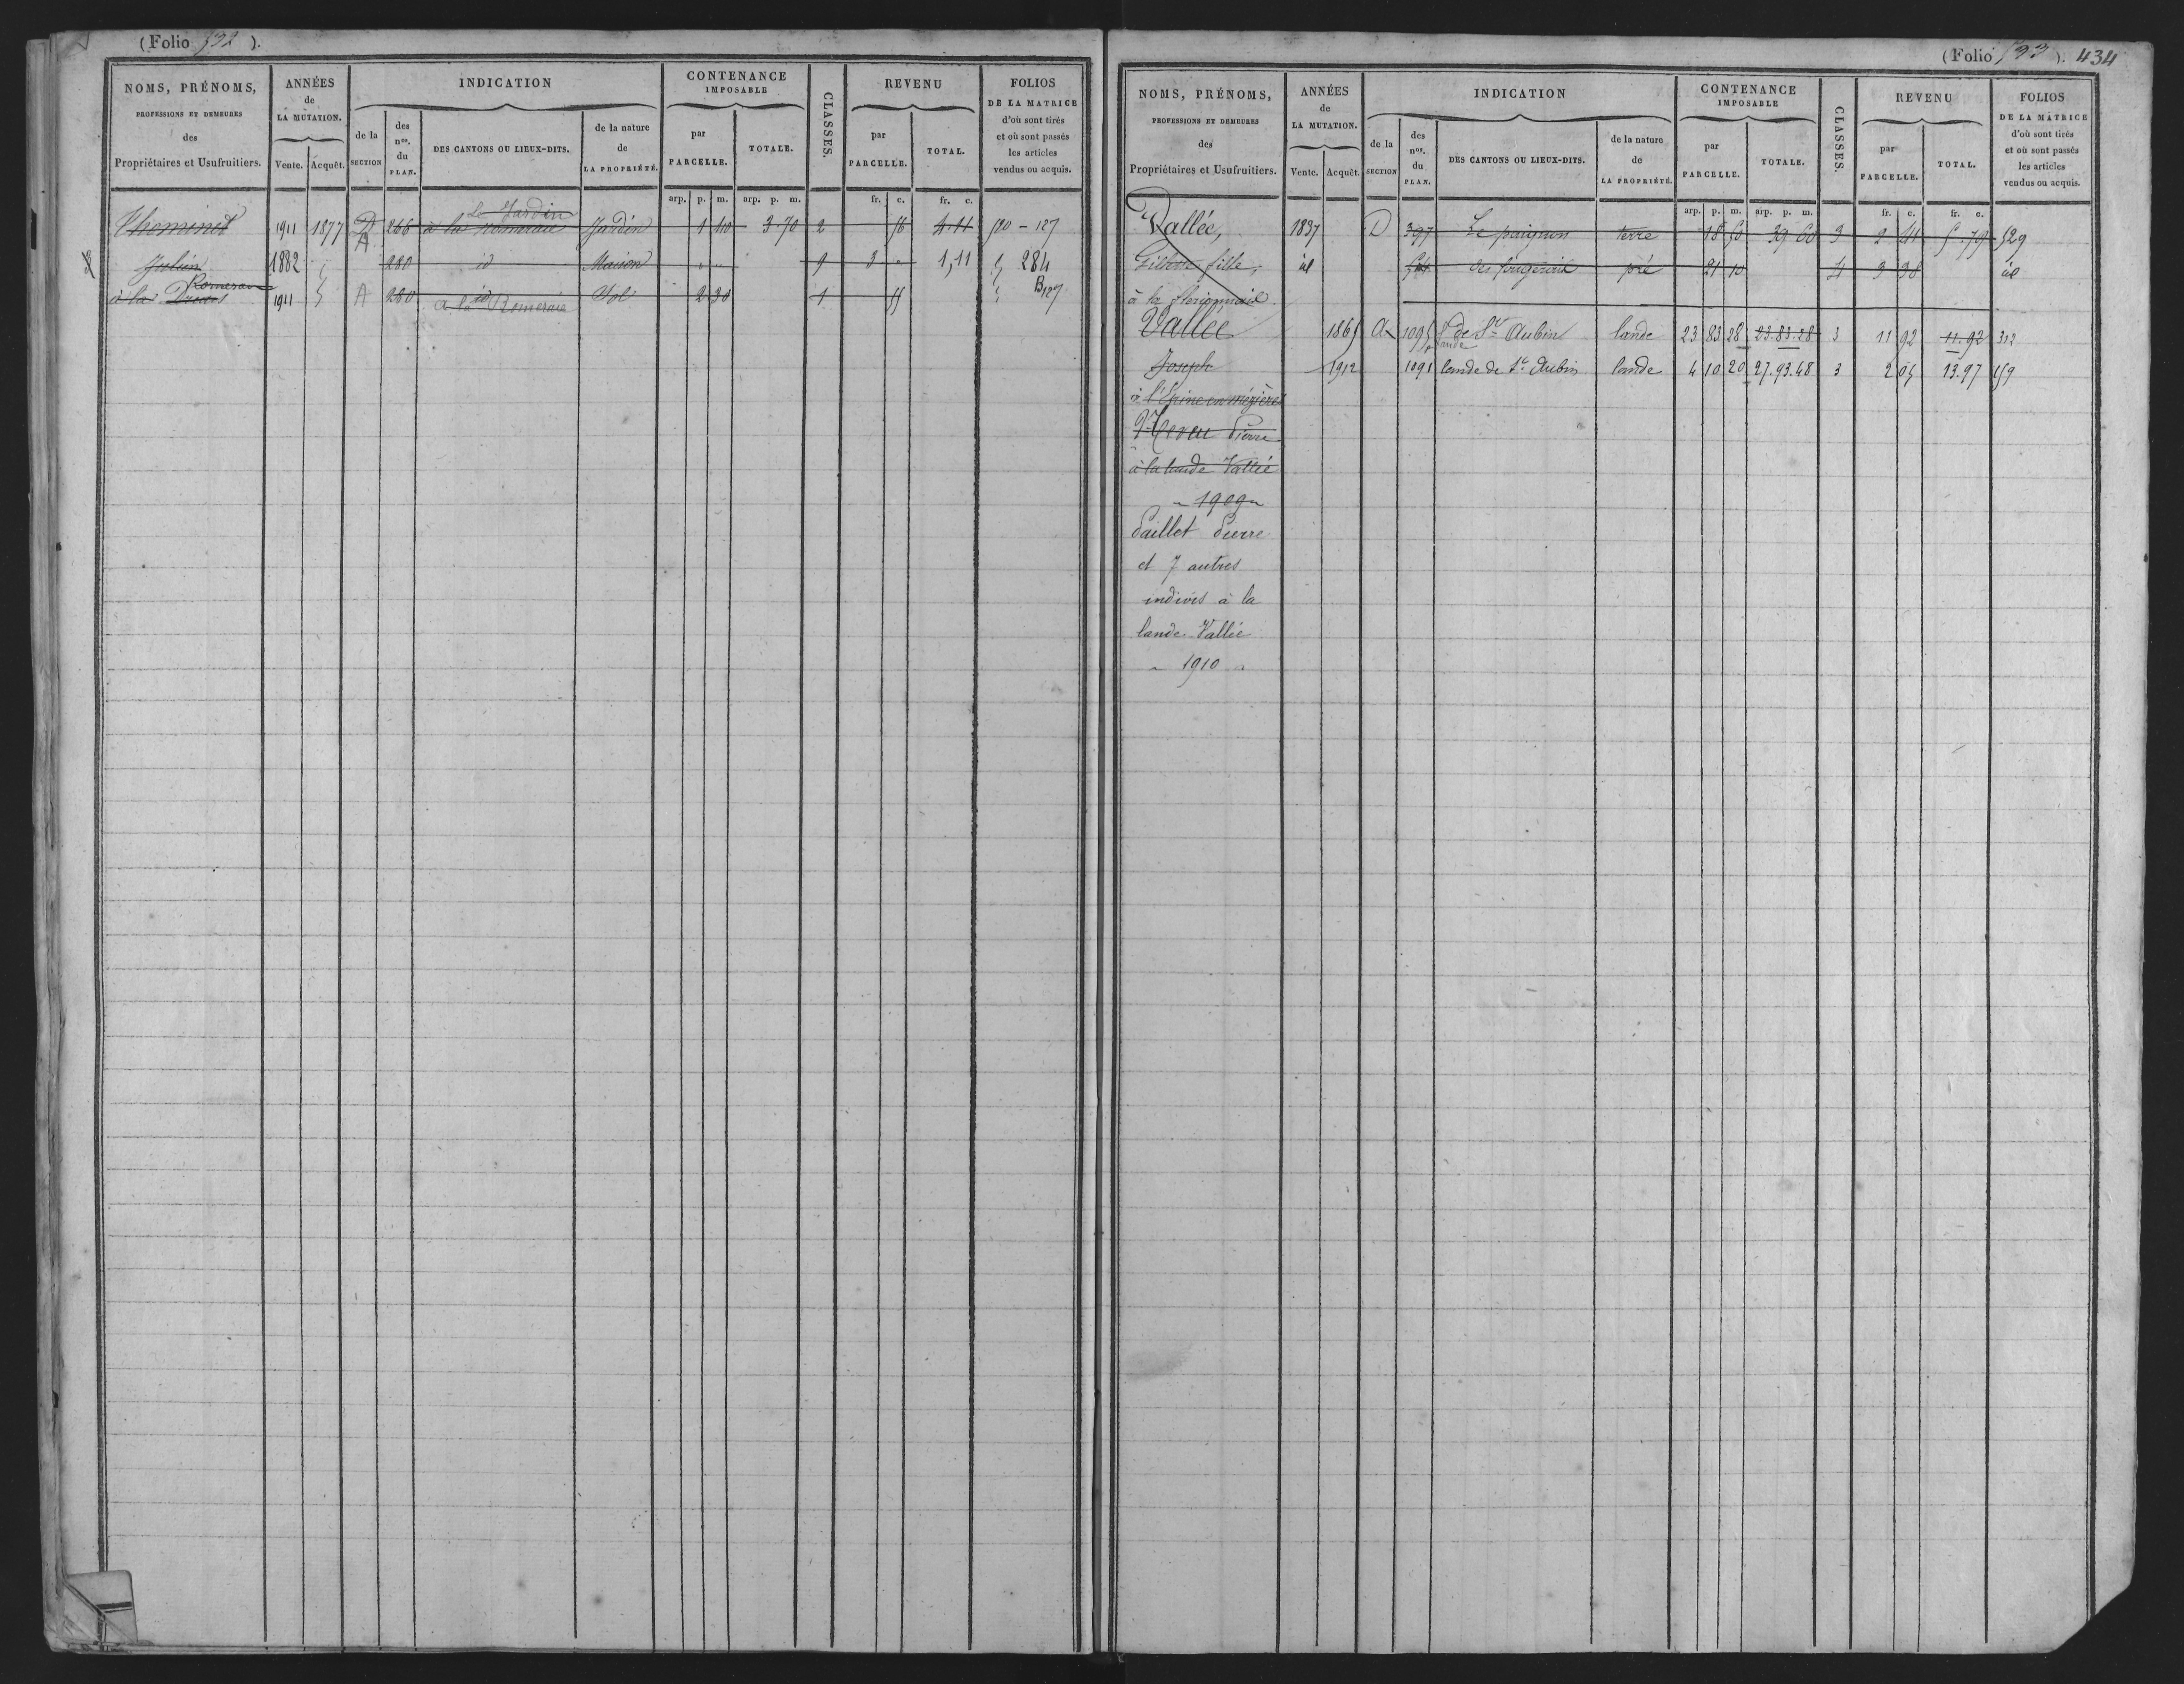 (Folio 592 ).
NOMS, PRÉNOMS,
PROFESSIONS ET DEMEURES
des
Propriétaires et Usufruitiers.
ANNÉES
de
LA MUTATION.
Vente. Acquêt.
INDICATION
de la
SECTION
des
nos.
du
PLAN.
DES CANTONS OU LIEUX-DITS.
de la nature
de
LA PROPRIÉTÉ.
CONTENANCE
IMPOSABLE
par
PARCELLE.
TOTALE.
CLASSES.
REVENU
par
PARCELLE.
TOTAL.
FOLIOS
DE LA MATRICE
d'où sont tirés
et où sont passés
les articles
vendus ou acquis.
arp. p. m. arp. p. m. fr. c. fr. c.
Le Jardin
Thominet 1911 1877 D 266 à la Romeraie Jardin 1 40 3.70 2 56 4.11 520 - 127
A
Julien 1882 280 id Maison " " 9 3 " 1,11 284
Romeraie
à la 1911 A 280 id Sol 2 30 1 55 B127
à la Romeraie
(Folio 593 ). 434
NOMS, PRÉNOMS,
PROFESSIONS ET DEMEURES
des
Propriétaires et Usufruitiers.
ANNÉES
de
LA MUTATION.
Vente. Acquêt.
INDICATION
de la
SECTION
des
nos.
du
PLAN.
DES CANTONS OU LIEUX-DITS.
de la nature
de
LA PROPRIÉTÉ.
CONTENANCE
IMPOSABLE
par
PARCELLE.
TOTALE.
CLASSES.
REVENU
par
PARCELLE.
TOTAL.
FOLIOS
DE LA MATRICE
d'où sont tirés
et où sont passés
les articles
vendus ou acquis.
arp. p. m. arp. p. m. fr. c. fr. c.
Vallée, 1837 D 397 Le terre 18 50 39 60 3 2 41 5.79 529
fille, id des pré 21 10 4 3 38 id
à la
Vallée 1865 A 1095 Lande de St Aubin lande 23 83 28 23.83.28 3 11 92 11.92 312
Joseph 1912 1091 lande de St Aubin lande 4 10 20 27.93.48 3 2 05 13.97 159
à l'Epine en mézières
Pierre
à la lande Vallée
" 1909 "
Paillet Pierre
et 7 autres
indivis à la
lande Vallée
" 1910 "